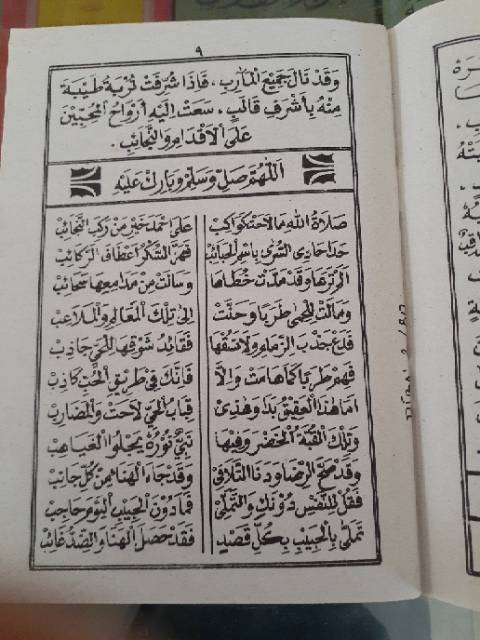 ٩
وَقَدْ نَالَ جَمِيْعَ الْمَآرِبِ ، فَاِذَا شُرِّفَتْ تُرْبَةُ طَيْبَةَ
مِنْهُ بِاَشْرَفِ قَالَبٍ ، سَعَتْ اِلَيْهِ اَرْوَاحُ الْمُحِبِّيْنَ
عَلَى الْاَقْدَامِ وَالنَّجَائِبِ .
اَللّٰهُمَّ صَلِّ وَسَلِّمْ وَبَارِكْ عَلَيْهِ
صَلَاةُ اللهِ مَا لَاحَتْ كَوَاكِبْ عَلَى اَحْمَدْ خَيْرِ مَنْ رَكِبَ النَّجَائِبْ
حَدَا حَادِى السُّرٰى بِاسْمِ الْحَبَائِبْ فَهَزَّ السُّكْرُ اَعْطَافَ الرَّكَائِبْ
اَلَمْ تَرَهَا وَقَدْ مَدَّتْ خُطَاهَا وَسَالَتْ مِنْ مَدَامِعِهَا سَحَائِبْ
وَمَالَتْ لِلْحِمٰى طَرَبًا وَحَنَّتْ اِلٰى تِلْكَ الْمَعَالِمِ وَالْمَلَاعِبْ
فَدَعْ جَذْبَ الزِّمَامِ وَلَا تَسُقْهَا فَقَائِدُ شَوْقِهَا لِلْحَيِّ جَاذِبْ
فَهِمْ طَرَبًا كَمَا هَامَتْ وَاِلَّا فَاِنَّكَ فِيْ طَرِيْقِ الْحُبِّ كَاذِبْ
اَمَا هٰذَا الْعَقِيْقُ بَدَا وَهٰذِىْ قِبَابُ الْحَيِّ لَاحَتْ وَالْمَضَارِبْ
وَتِلْكَ الْقُبَّةُ الْخَضْرَا وَفِيْهَا نَبِيٌّ نُوْرُهُ يَجْلُوا الْغَيَاهِبْ
وَقَدْ صَحَّ الرِّضَا وَدَنَا التَّلَاقِيْ وَقَدْ جَاءَ الْهَنَا مِنْ كُلِّ جَانِبْ
فَقُلْ لِلنَّفْسِ دُوْنَكِ وَالتَّمَلِّيْ فَمَا دُوْنَ الْحَبِيْبِ الْيَوْمَ حَاجِبْ
تَمَلَّىْ بِالْحَبِيْبِ بِكُلِّ قَصْدٍ فَقَدْ حَصَلَ الْهَنَا وَالضِّدُّ غَائِبْ